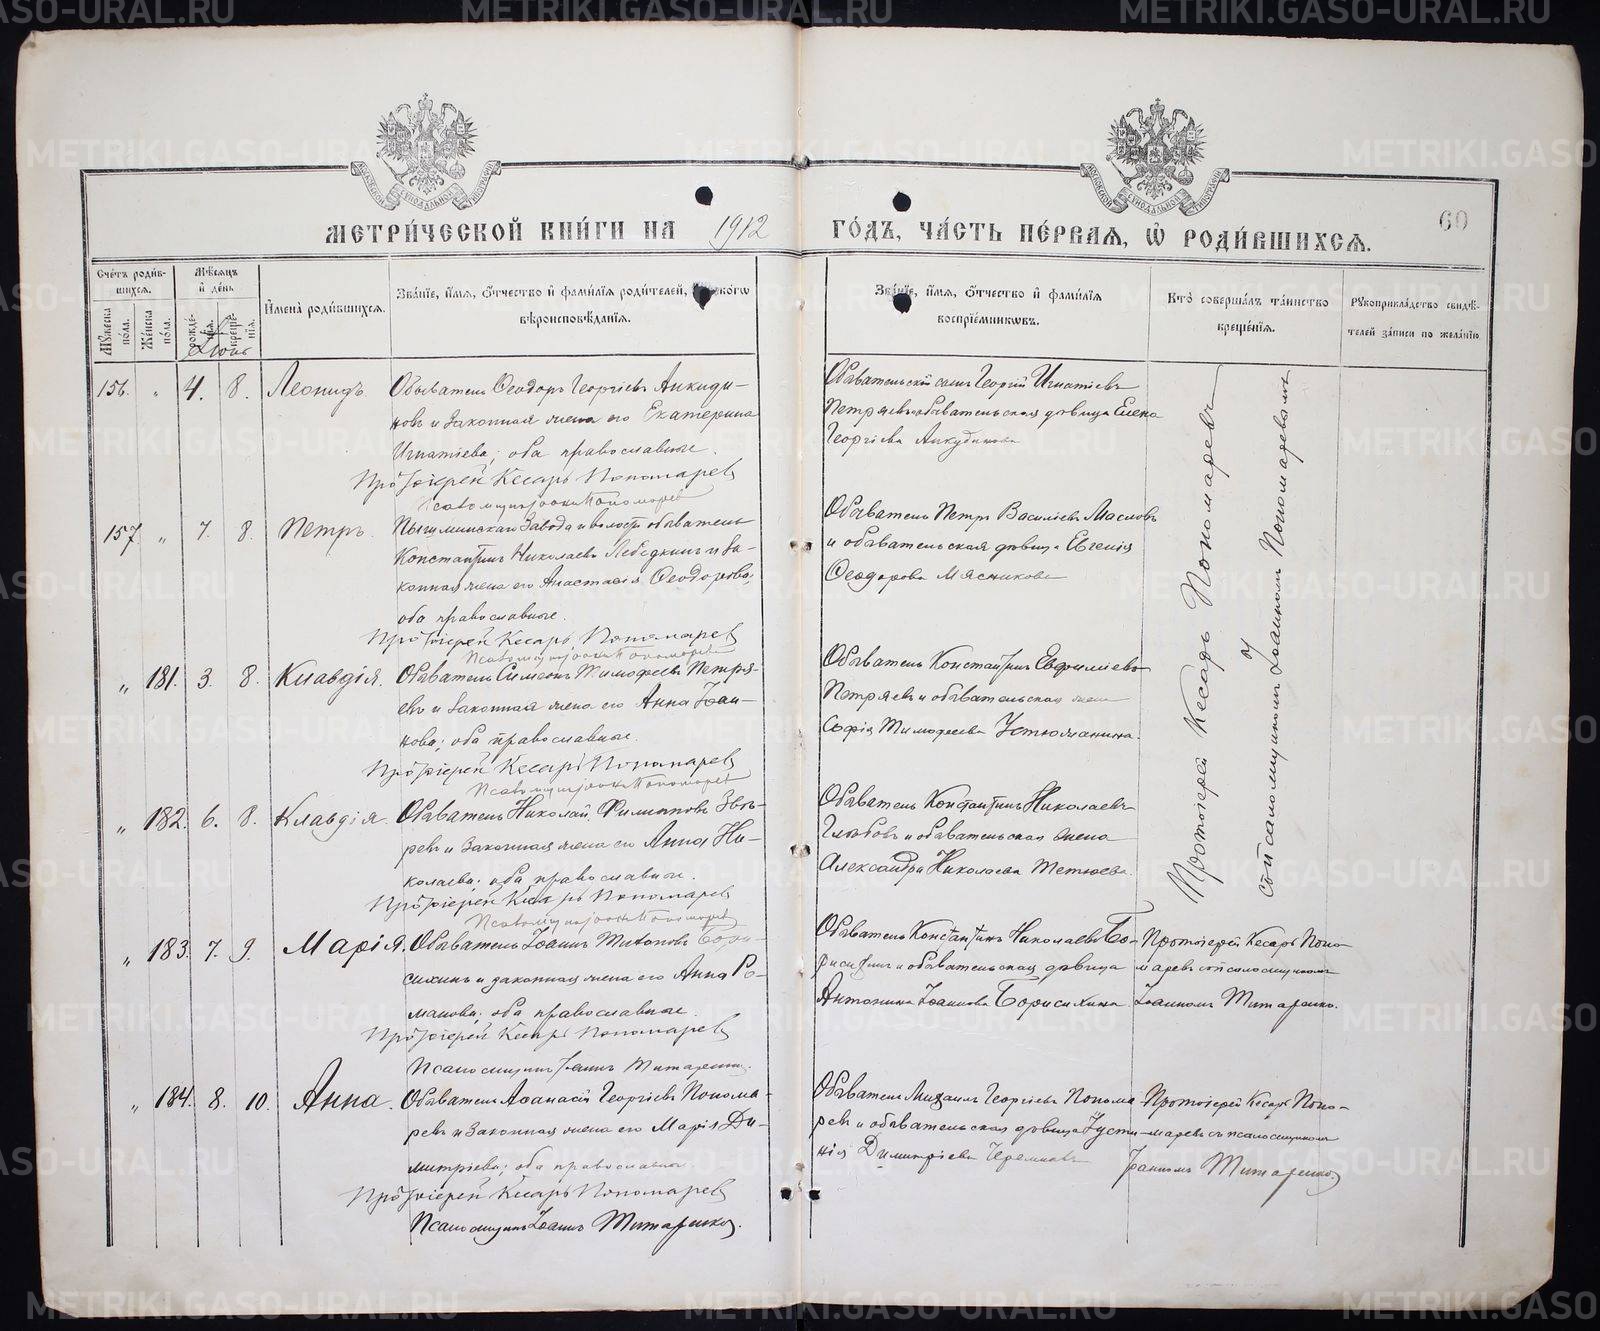 МЕТРИ́ЧЕСКОЙ КНИ́ГИ НА 1912 ГО́ДЪ, ЧА́СТЬ ПЕ́РВАЯ, Ѡ РОДИ́ВШИХСЯ.
60
Сче́тъ роди́в-
шихся.
Му́жеска по́ла.
Же́нска по́ла.
Мѣ́сяцъ
и́ де́нь
рожде́-
нїя.
креще́-
нїя.
И҆мена̀ роди́вшихся.
Зва́нїе, и҆́мя, ѻ҆́тчество и҆ фами́лїя роди́телей,
вѣроисповѣ́данїя.
Зва́нїе, и҆́мя, ѻ҆́тчество и҆ фами́лїя
воспрїе́мникѡвъ.
Кто̀ соверша́лъ та́инство
креще́нїя.
Рꙋкоприкла́дство свидѣ́-
телей за́писи по жела́нїю.
156. " 4. 8. Леонидъ.
Обыватель Ѳеодоръ Георгіевъ Анкуди-
новъ и законная жена его Екатерина
Игнатіева; оба православные.
Протоіерей Кесарь Пономаревъ
Обывательскій сынъ Георгій Игнатіевъ
Петряевъ и обывательская дѣвица Елена
Георгіева Анкудинова
157 " 7. 8. Петръ.
Пышминскаго завода и волости обыватель
Константинъ Николаевъ Лебедкинъ и за-
конная жена его Анастасія Ѳеодорова;
оба православные.
Протоіерей Кесарь Пономаревъ
Обыватель Петръ Василіевъ Масловъ
и обывательская дѣвица Евгенія
Ѳеодорова Мясникова
" 181. 3. 8. Клавдія.
Обыватель Симеонъ Тимоѳеевъ Петря-
евъ и законная жена его Анна Іоан-
нова; оба православные.
Протоіерей Кесарь Пономаревъ
Обыватель Константинъ
Петряевъ и обывательская жена
Софія Тимоѳеева Устюжанина.
" 182. 6. 8. Клавдія.
Обыватель Николай Филипповъ Звѣ-
ревъ и законная жена его Анна Ни-
колаева; оба православные.
Протоіерей Кесарь Пономаревъ
Обыватель Константинъ Николаевъ
Глѣбовъ и обывательская жена
Александра Николаева Тетюева.
Протоіерей Кесарь Пономаревъ
съ псаломщикомъ Іоанномъ Пономаревымъ
" 183. 7. 9. Марія.
Обыватель Іоаннъ Титовъ Бори-
сихинъ и законная жена его Анна Ро-
манова; оба православные.
Протоіерей Кесарь Пономаревъ
Псаломщикъ Іоаннъ Титаренко.
Обыватель Константинъ Николаевъ Бо-
рисихинъ и обывательская дѣвица
Антонина Іоаннова Борисихина
Протоіерей Кесарь Поно-
маревъ съ псаломщикомъ
Іоанномъ Титаренко.
" 184. 8. 10. Анна.
Обыватель Аѳанасій Георгіевъ Понома-
ревъ и законная жена его Марія Ди-
митріева; оба православные
Протоіерей Кесарь Пономаревъ
Псаломщикъ Іоаннъ Титаренко.
Обыватель Михаилъ Георгіевъ Понома-
ревъ и обывательская дѣвица Іусти-
нія Димитріева
Протоіерей Кесарь Поно-
маревъ съ псаломщикомъ
Іоанномъ Титаренко
METRIKI.GASO-URAL.RU